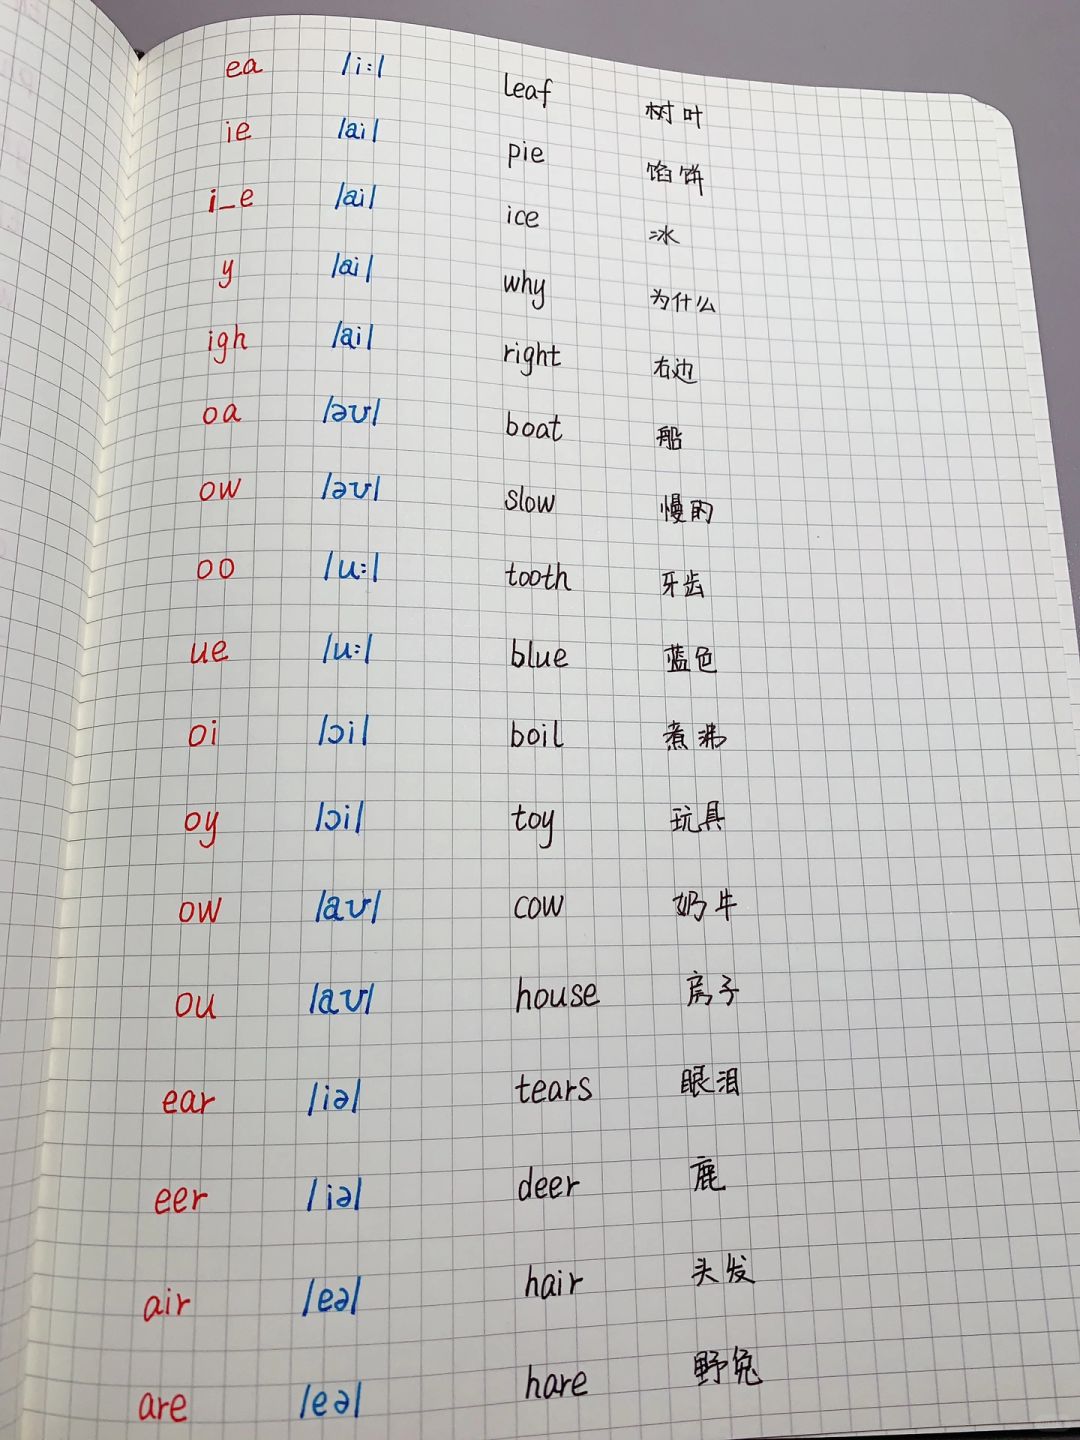 ea /i:/ leaf 树叶
ie /ai/ pie 馅饼
i_e /ai/ ice 冰
y /ai/ why 为什么
igh /ai/ right 右边
oa /əʊ/ boat 船
ow /əʊ/ slow 慢的
oo /u:/ tooth 牙齿
ue /u:/ blue 蓝色
oi /ɔi/ boil 煮沸
oy /ɔi/ toy 玩具
ow /aʊ/ cow 奶牛
ou /aʊ/ house 房子
ear /iə/ tears 眼泪
eer /iə/ deer 鹿
air /eə/ hair 头发
are /eə/ hare 野兔